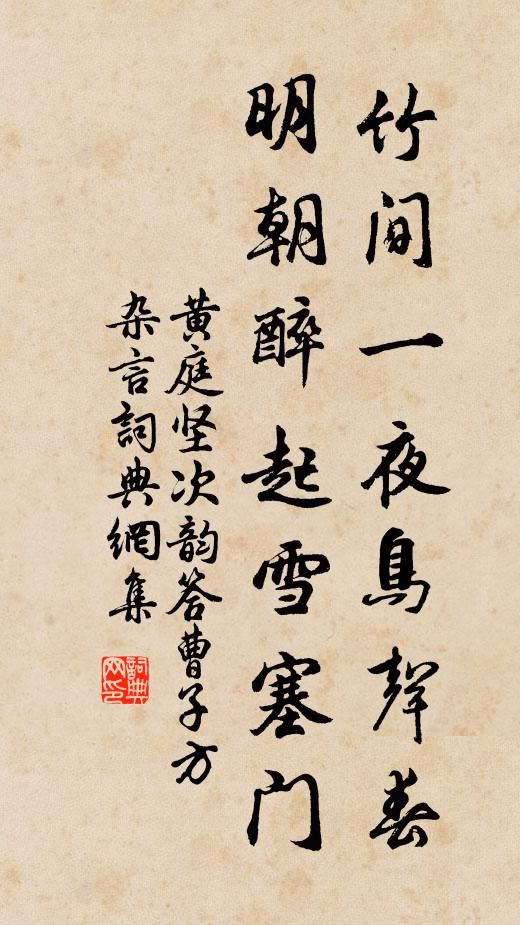 竹间一夜鳥聲春
明朝醉起雪塞门
黄庭坚次韵答曹子方
杂言詞典網集
詞典网印